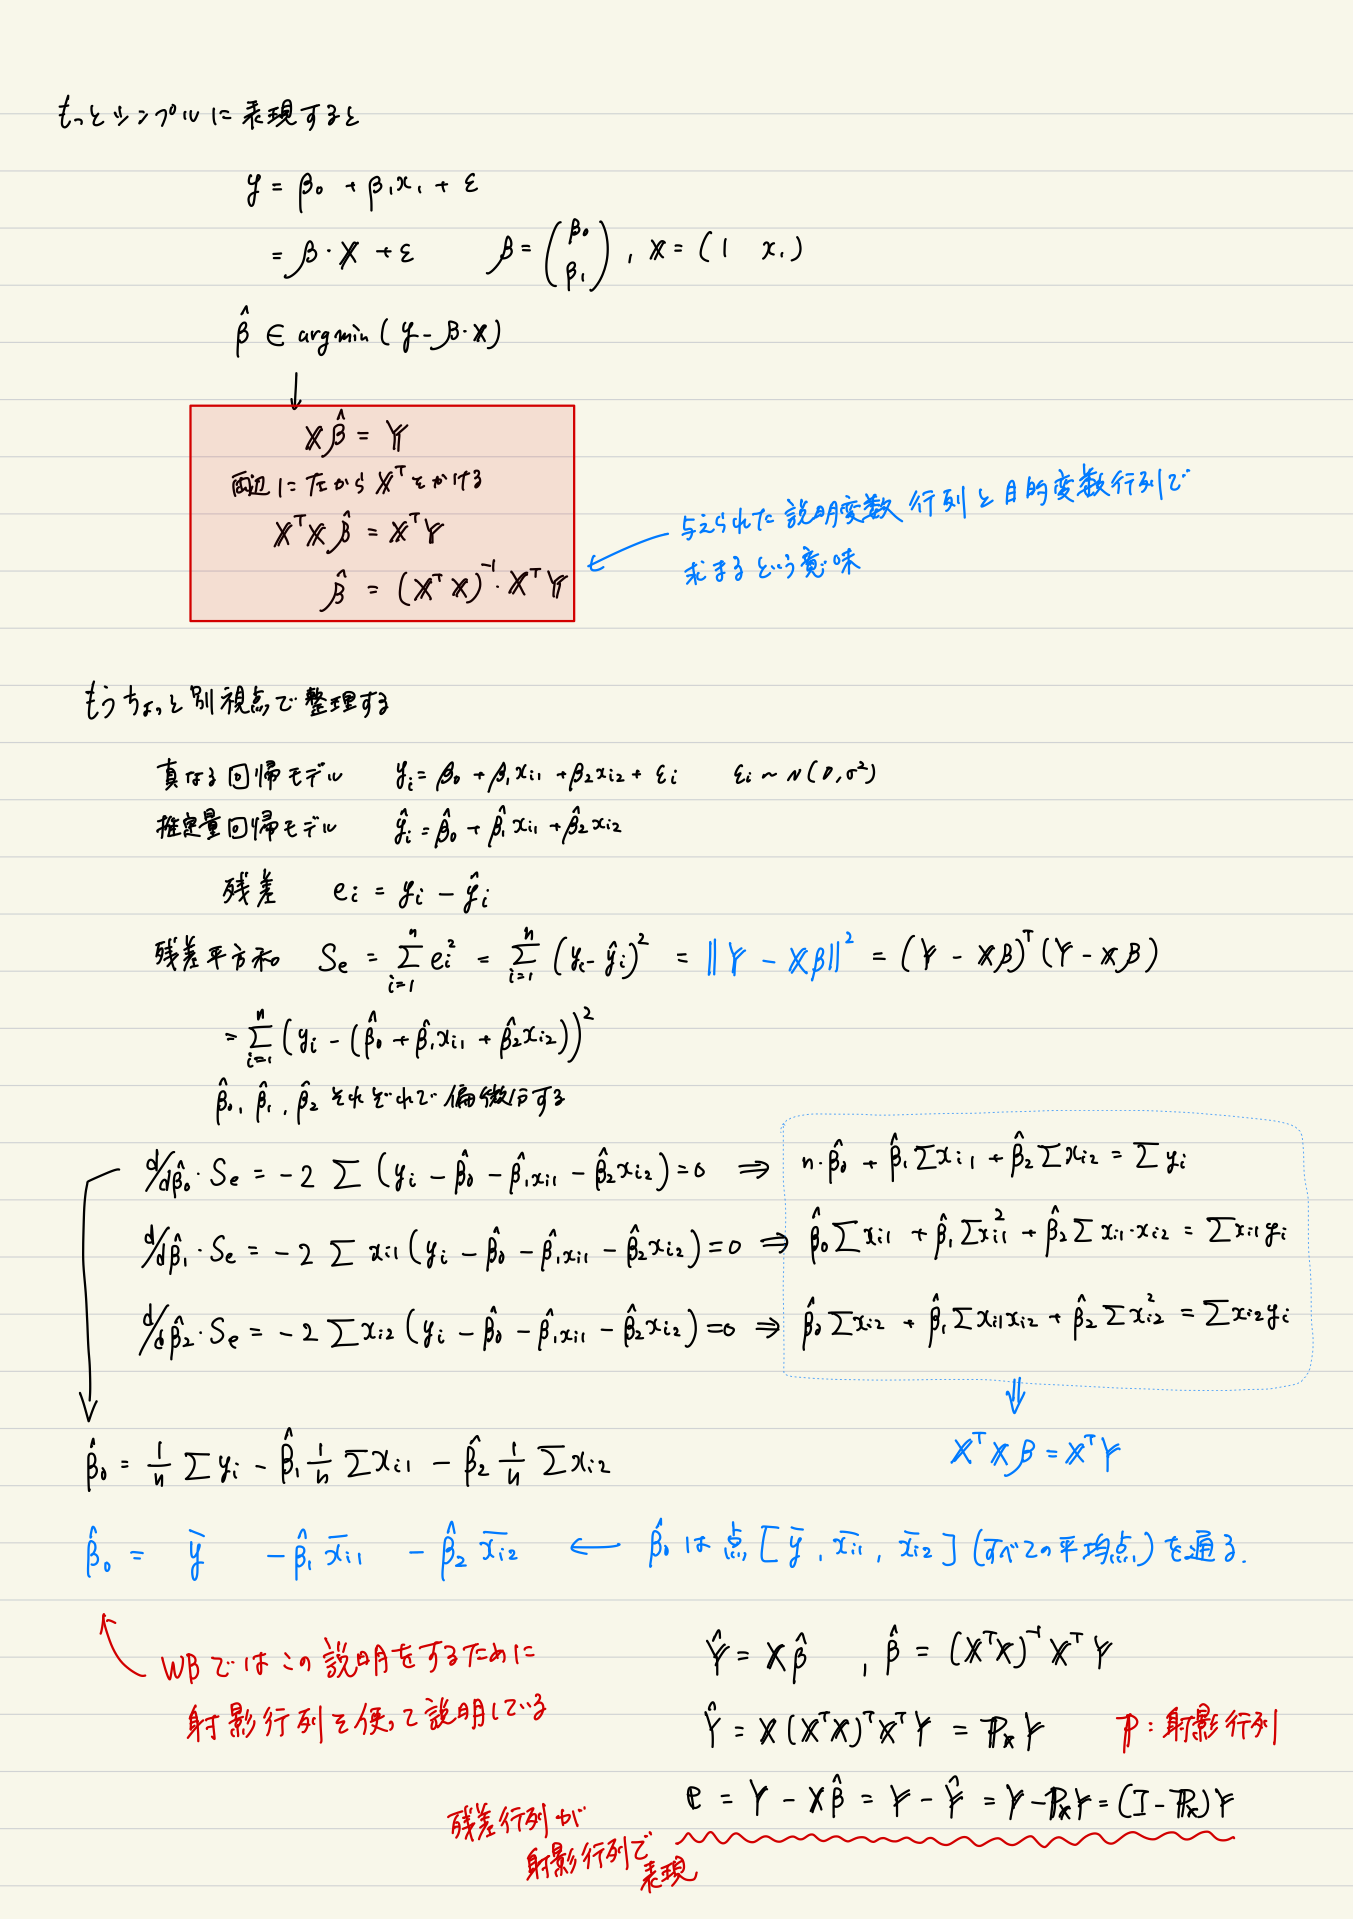 もっとシンプルに表現すると
y = β₀ + β₁x₁ + ε
= β・X + ε　β = (β₀ β₁) , X = (1 x₁)
β̂ ∈ argmin (y - β・X)
↓
Xβ̂ = Y
両辺に左からXᵀをかける
XᵀXβ̂ = XᵀY
β̂ = (XᵀX)⁻¹・XᵀY
← 与えられた説明変数行列と目的変数行列で
求まるという意味
もうちょっと別視点で整理する
真なる回帰モデル　yᵢ = β₀ + β₁xᵢ₁ + β₂xᵢ₂ + εᵢ　εᵢ ~ N(0, σ²)
推定量回帰モデル　ŷᵢ = β̂₀ + β̂₁xᵢ₁ + β̂₂xᵢ₂
残差　eᵢ = yᵢ - ŷᵢ
残差平方和　Se = Σⁿᵢ₌₁ eᵢ² = Σⁿᵢ₌₁ (yᵢ - ŷᵢ)² = ‖Y - Xβ‖² = (Y - Xβ)ᵀ(Y - Xβ)
= Σⁿᵢ₌₁ (yᵢ - (β̂₀ + β̂₁xᵢ₁ + β̂₂xᵢ₂))²
β̂₀, β̂₁, β̂₂ それぞれで偏微分する
d/dβ̂₀・Se = -2 Σ (yᵢ - β̂₀ - β̂₁xᵢ₁ - β̂₂xᵢ₂) = 0 ⇒ n・β̂₀ + β̂₁Σxᵢ₁ + β̂₂Σxᵢ₂ = Σyᵢ
d/dβ̂₁・Se = -2 Σ xᵢ₁(yᵢ - β̂₀ - β̂₁xᵢ₁ - β̂₂xᵢ₂) = 0 ⇒ β̂₀Σxᵢ₁ + β̂₁Σxᵢ₁² + β̂₂Σxᵢ₁・xᵢ₂ = Σxᵢ₁yᵢ
d/dβ̂₂・Se = -2 Σxᵢ₂(yᵢ - β̂₀ - β̂₁xᵢ₁ - β̂₂xᵢ₂) = 0 ⇒ β̂₀Σxᵢ₂ + β̂₁Σxᵢ₁xᵢ₂ + β̂₂Σxᵢ₂² = Σxᵢ₂yᵢ
⇓
XᵀXβ = XᵀY
β̂₀ = 1/n Σyᵢ - β̂₁ 1/n Σxᵢ₁ - β̂₂ 1/n Σxᵢ₂
β̂₀ = ȳ - β̂₁x̄ᵢ₁ - β̂₂x̄ᵢ₂ ← β̂₀は点[ȳ, x̄ᵢ₁, x̄ᵢ₂](すべての平均点)を通る.
WBではこの説明をするために
射影行列を使って説明している
Ŷ = Xβ̂ , β̂ = (XᵀX)⁻¹XᵀY
Ŷ = X(XᵀX)ᵀXᵀY = PₓY　P: 射影行列
e = Y - Xβ̂ = Y - Ŷ = Y - PₓY = (I - Pₓ)Y
残差行列が
射影行列で
表現